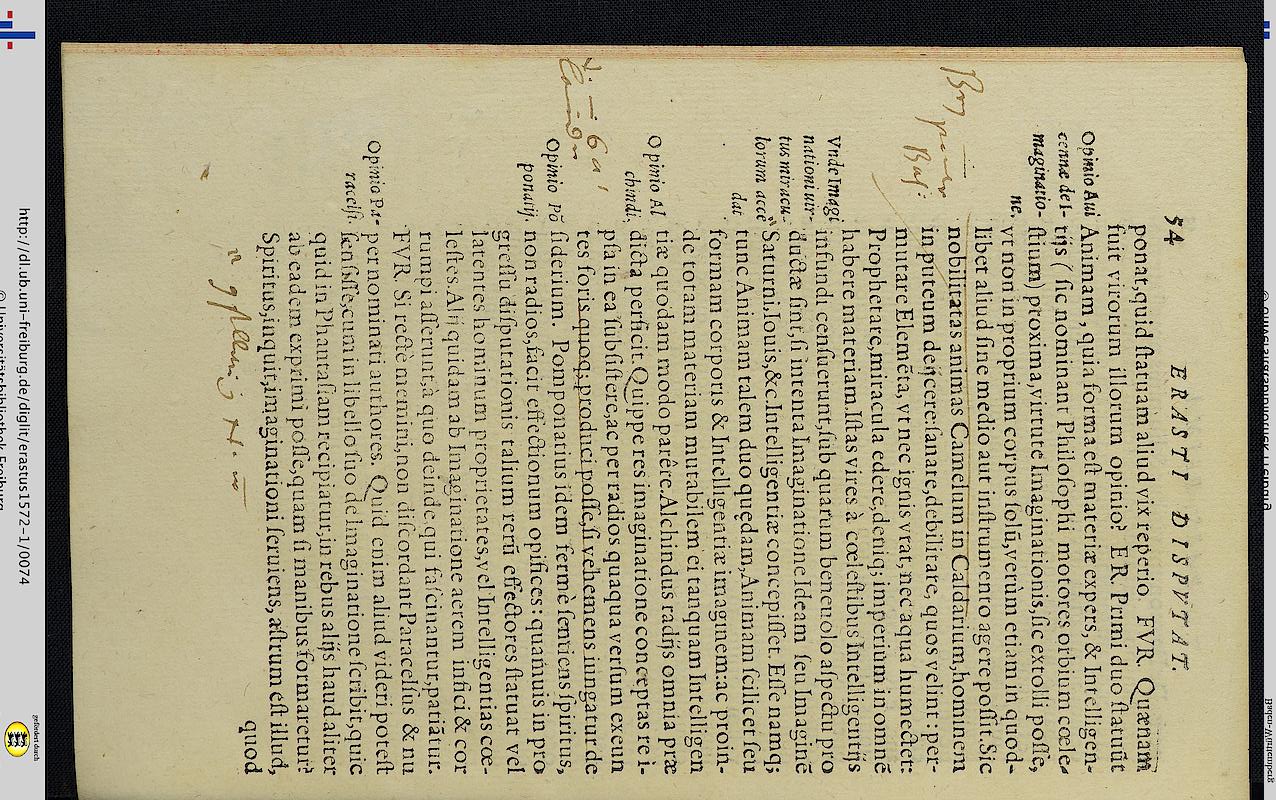 54
ERASTI DISPVTAT.
ponat, quid ſtatuam aliud vix reperio. FVR. Quænam
fuit virorum illorum opinio? ER. Primi duo ſtatuũt
Animam, quia forma eſt materiæ expers, & Intelligen-
tijs (ſic nominant Philoſophi motores orbium cœle-
ſtium) proxima, virtute Imaginationis, ſic extolli poſſe,
vt non in proprium corpus ſolũ, verùm etiam in quod-
libet aliud ſine medio aut inſtrumento agere poſſit. Sic
nobilitatas animas Camelum in Caldarium, hominem
in puteum deijcere: ſanare, debilitare, quos velint: per-
mutare Elemẽta, vt nec ignis vrat, nec aqua humectet:
Prophetare, miracula edere, deniq; imperium in omnẽ
habere materiam. Iſtas vires à cœleſtibus Intelligentijs
infundi cenſuerunt, ſub quarum beneuolo aſpectu pro
ductæ ſint, ſi intenta Imaginatione Ideam ſeu Imaginẽ
Saturni, Iouis, &c. Intelligentiæ concepiſſet. Eſſe namq;
tunc Animam talem duo quędam, Animam ſcilicet ſeu
formam corporis & Intelligentiæ imaginem: ac proin-
de totam materiam mutabilem ei tanquam Intelligen
tiæ quodam modo parêre. Alchindus radijs omnia præ
dicta perficit. Quippe res imaginatione conceptas re i-
pſa in ea ſubſiſtere, ac per radios quaqua verſum exeun
tes foris quoq; produci poſſe, ſi vehemens iungatur de
ſiderium. Pomponatius idem fermè ſentiens ſpiritus,
non radios, facit effectionum opifices: quamuis in pro
greſſu diſputationis talium rerũ effectores ſtatuat vel
latentes hominum proprietates, vel Intelligentias cœ-
leſtes. Alij quidam ab Imaginatione aerem infici & cor
rumpi aſſerunt, à quo deinde, qui faſcinantur, patiãtur.
FVR. Si rectè memini, non diſcordant Paracelſus & nu
per nominati authores. Quid enim aliud videri poteſt
ſenſiſſe, cum in libello ſuo de Imaginatione ſcribit, quic
quid in Phantaſiam recipiatur, in rebus alijs haud aliter
ab eadem exprimi poſſe, quam ſi manibus formaretur?
Spiritus, inquit, imaginationi ſeruiens, aſtrum eſt illud,
quod
Opinio Aui
cennæ de I-
maginatio-
ne,
Vnde Imagi
nationi uir-
tus miracu-
lorum acce
dat
Opinio Al
chindi.
Opinio Põ
ponatij.
Opinio Pa-
racelſi.
http://dl.ub.uni-freiburg.de/diglit/erastus1572-1/0074
© Universitätsbibliothek Freiburg
gefördert durch